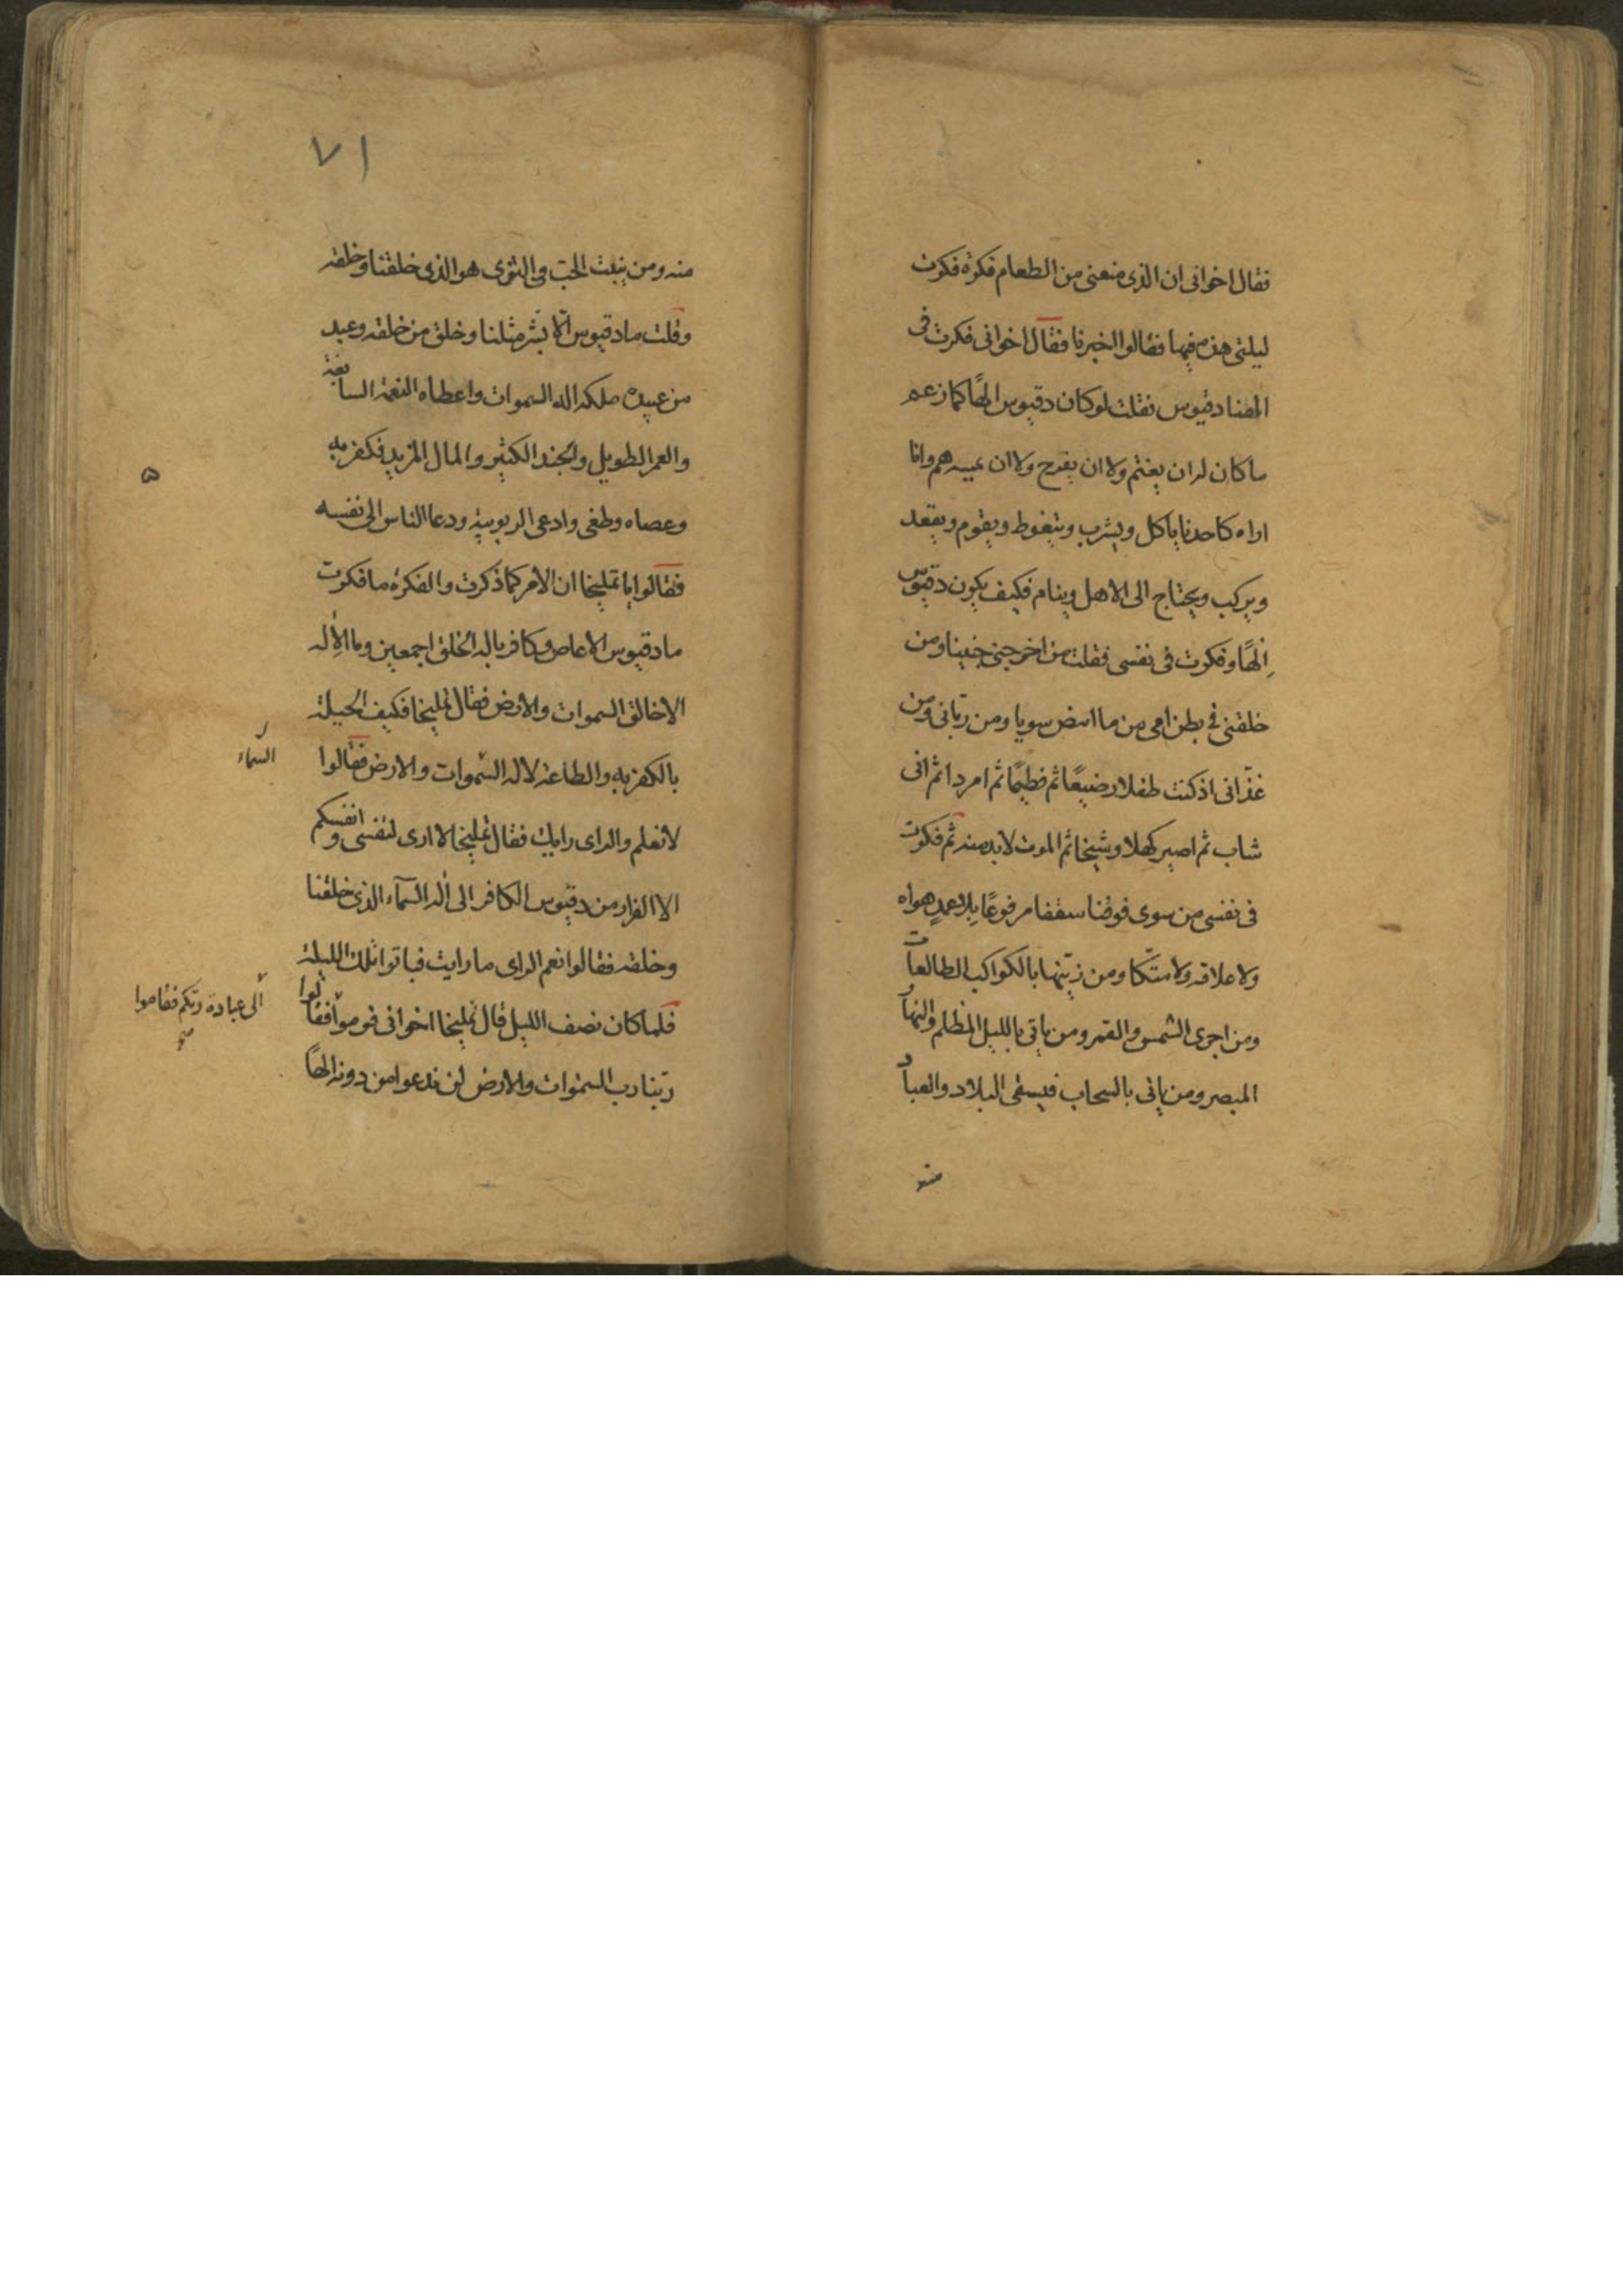 فقال اخوانى ان الذى منعنى من الطعام فكرة فكرت
ليلتى هذه فيها فقالوا اخبرنا فقال اخوانى فكرت فى
الهنا دقيوس فقلت لو كان دقيوس الهًا كما زعم
ما كان له ان يغتم ولا ان يفرح ولا ان يميسه هم وانا
اراه كاحدنا ياكل ويشرب ويتغوط ويقوم ويقعد
ويركب ويحتاج الى الاهل وينام فكيف يكون دقيوس
اِلهًا وفكرت فى نفسى فقلت من اخرجنى جنينا ومن
خلقنى فى بطن امى من ما ابيض سويا ومن ربانى ومن
غذّانى اذ كنت طفلا رضيعًا ثم فطيمًا ثم امردا ثم انى
شاب ثم اصير كهلا وشيخا ثم الموت لابد منه ثم فكرت
فى نفسى من سوى فوقنا سقفا مرفوعًا بِلا عمدٍ هواه
ولا علاقه ولا متكا ومن زيّنها بالكواكب الطالعات
ومن اجرى الشمس والقمر ومن ياتى بالليل المظلم والنهار
المبصر ومن ياتى بالسحاب فيسقى البلاد والعباد
منه
٧١
منه ومن ينبت الحبّ فى الثرى هو الذى خلقنا وخلقه
وقلت ما دقيوس الّا بشر مثلنا وخلق من خلقه وعبد
من عبيده ملكه اله السموات واعطاه النعمة السابغة
والعمر الطويل والجند الكثير والمال المزيد فكفر به
وعصاه وطغى وادعى الربوبية ودعا الناس الى نفسه
فقالوا يا تمليخا ان الامر كما ذكرت والفكرة ما فكرت
ما دقيوس الا عاص وكافر باله الخلق اجمعين وما الاِله
الا خالق السموات والارض فقال تمليخا فكيف الحيلة
بالكفر به والطاعة لاله السّموات والارض فقالوا
السّماء
لا نعلم والراى رايك فقال تمليخا لا ارى لنفسى وانفسكم
الا الفرار من دقيوس الكافر الى اله السّمآء الذى خلقنا
وخلقه فقالوا نعم الراى ما رايت فباتوا تلك الليلة
فلما كان نصف الليل قال تمليخا اخوانى قوموا فقالوا
الى عبادة ربّكم فقاموا
ربّنا رب السّموات والارض لن ندعوا من دونه الهًا